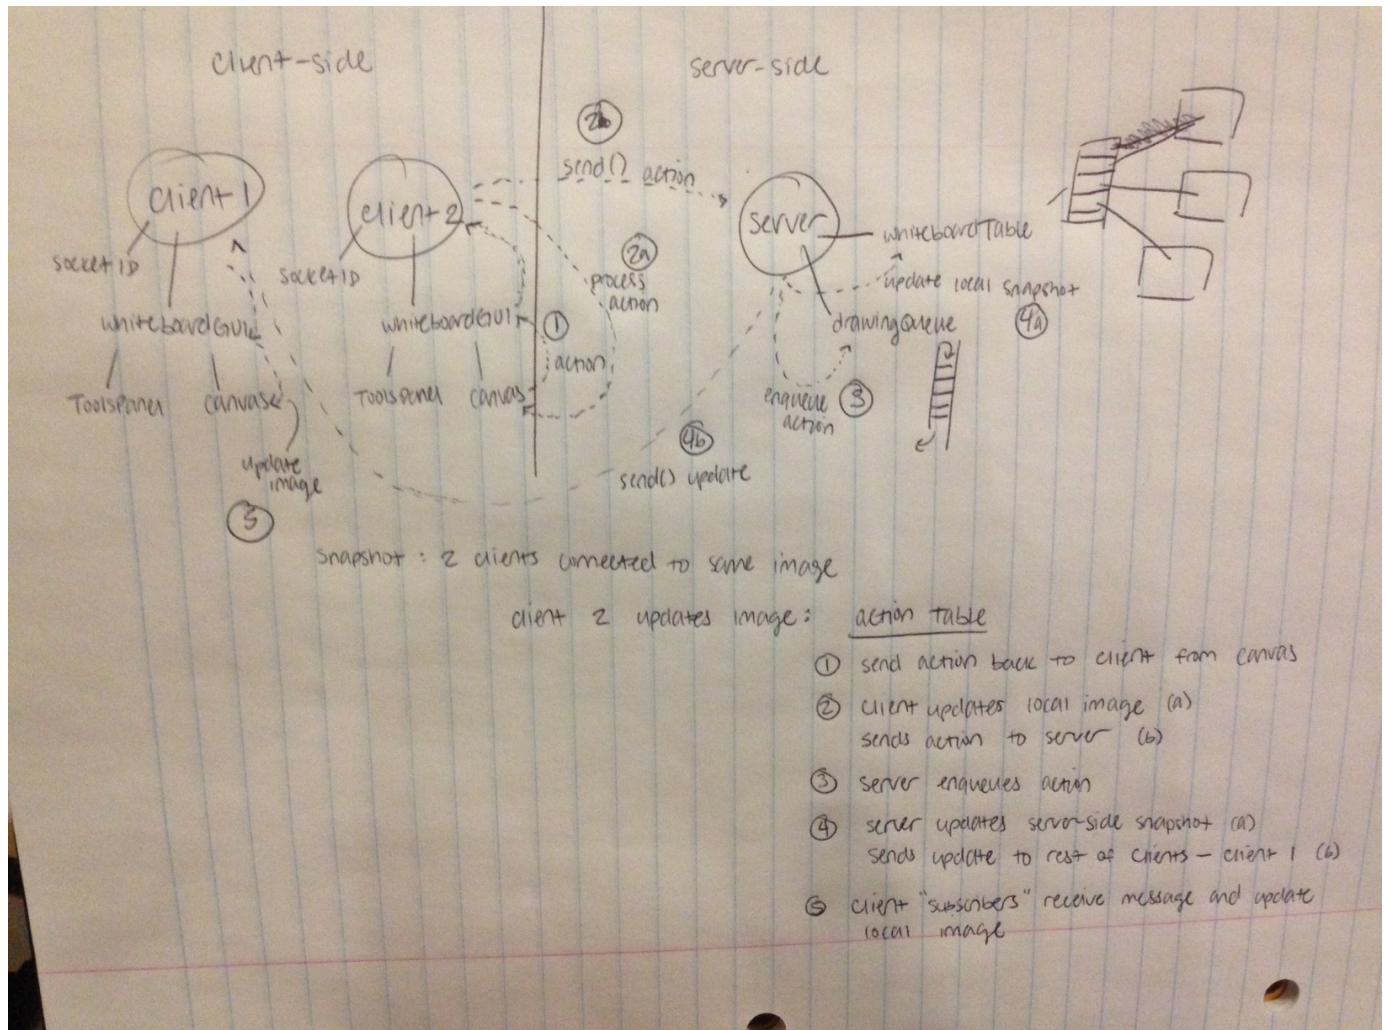 client-side
server-side
2b
send() action
client 1
client 2
server
socket ID
socket ID
whiteboardTable
2a
process
action
update local snapshot
4a
whiteboardGUI
whiteboardGUI
1
action
drawingQueue
ToolsPanel
canvas
ToolsPanel
canvas
enqueue
action
3
4b
send() update
update
image
5
snapshot : 2 clients connected to same image
client 2 updates image : action table
1 send action back to client from canvas
2 client updates local image (a)
sends action to server (b)
3 server enqueues action
4 server updates server-side snapshot (a)
sends update to rest of clients - client 1 (b)
5 client "subscribers" receive message and update
local image